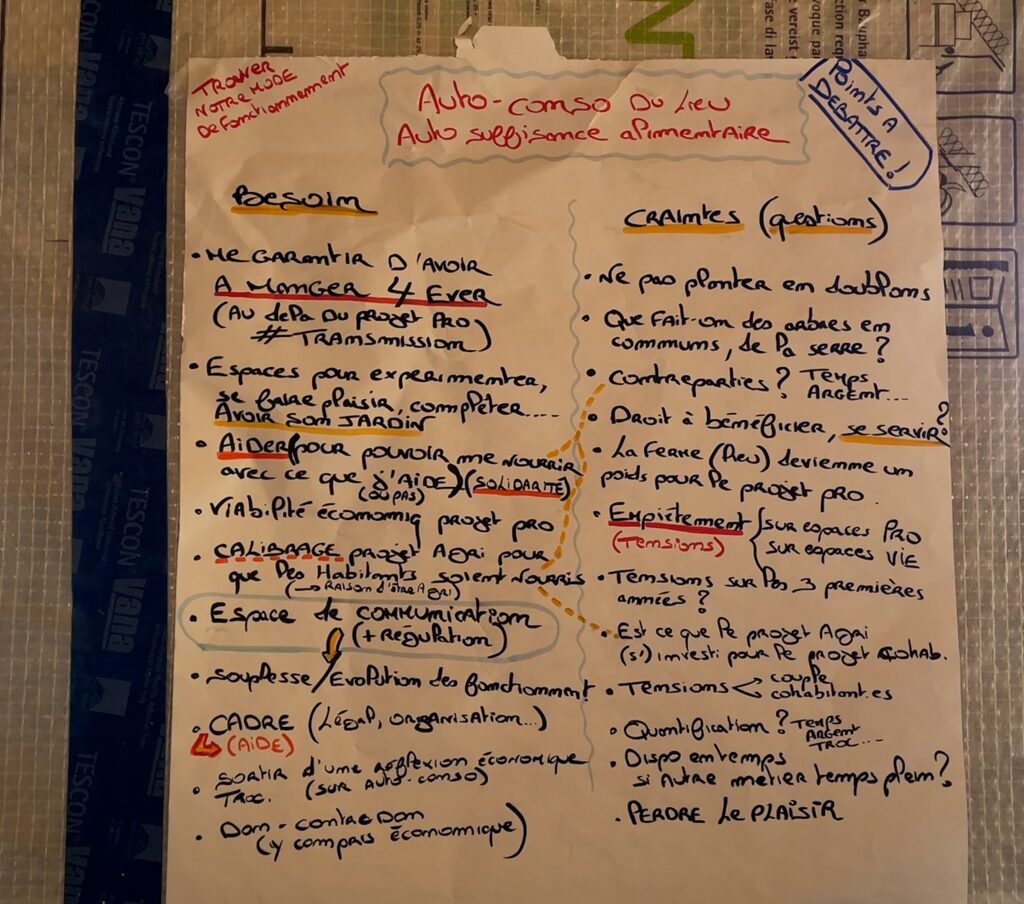 TROUVER
NOTRE MODE
De fonctionnement
Auto-conso Du Lieu
Auto suffisance alimentaire
Points A
DEBATTRE !
Besoin
• Me GARANTIR D'AVOIR
A MANGER 4 EVER
(Au delà du projet PRO
# TRANSMISSION)
• Espaces pour expérimenter,
se faire plaisir, compléter....
AVOIR SON JARDIN
• AIDER (pour pouvoir me nourrir
avec ce que j'AIDE) (SOLIDARITÉ)
(OU PAS)
• VIABILITÉ économiq projet pro
• CALIBRAGE projet AGRI pour
que les Habitants soient Nourris
(→ RAISON d'être AGRI)
• Espace de COMMUNICATION
(+ REGULATION)
• Souplesse / Evolution des fonctionnmt
• CADRE (Légal, organisation...)
(AIDE)
• SORTIR d'une réflexion économique
TROC. (sur AUTO-conso)
• Don - contre Don
(y compris économique)
CRAINTES (questions)
• Ne pas planter en doublons
• Que fait-on des arbres en
communs, de la serre ?
• Contreparties ? TEMPS
ARGENT...
• Droit à bénéficier, se servir ?
• La Ferme (lieu) devienne un
poids pour le projet pro.
• Empiétement { sur espaces PRO
(Tensions) sur espaces VIE
• Tensions sur les 3 premières
années ?
• Est ce que le projet AGRI
(s') investi pour le projet cohab.
• Tensions < couple
cohabitant.es
• Quantification ? TEMPS
ARGENT
TROC...
• Dispo en temps
si Autre métier temps plein ?
• PERDRE Le PLAISIR
TESCON Vana
TESCON Vana
TESCON Vana
TESCON